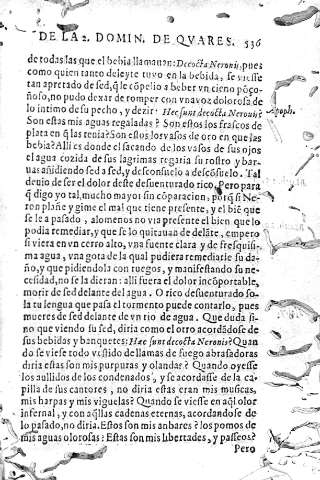 DE LA 2. DOMIN. DE QVARES. 536
de todas las que el bebia llamauan: Decocta Neronis, pues
como quien tanto deleyte tuvo en la bebida, se viesse
tan apretado de sed, q̃ le cõpelio a beber vn cieno põço-
ñoso, no pudo dexar de romper con vna voz dolorosa de
lo intimo de su pecho, y dezir: Hæc sunt decocta Neronis? Apoph.
Son estas mis aguas regaladas? Son estos los frascos de
plata en q̃ las tenia? Son estos los vasos de oro en que las
bebia? Alli es donde el sacando de los vasos de sus ojos
el agua cozida de sus lagrimas regaria su rostro y bar-
uas añidiendo sed a sed, y desconsuelo a descõsuelo. Tal
deuio de ser el dolor deste desuenturado rico. Pero para
q̃ digo yo tal, mucho mayor sin cõparacion, porq̃ si Ne-
ron plañe y gime el mal que tiene presente, y el biẽ que
se le a pasado, alomenos no vio presente el bien que lo
podia remediar, y que se lo quitauan de delãte, empero
si viera en vn cerro alto, vna fuente clara y de fresquisi-
ma agua, vna gota de la qual pudiera remediarle su da-
ño, y que pidiendola con ruegos, y manifestando su ne-
cesidad, no se la dieran: alli fuera el dolor incõportable,
morir de sed delante del agua. O rico desuenturado so-
la tu lengua que pasa el tormento puede contarlo, pues
mueres de sed delante de vn rio de agua. Que duda si-
no que viendo su sed, diria como el otro acordãdose de
sus bebidas y banquetes: Hæc sunt decocta Neronis? Quan
do se viese todo vestido de llamas de fuego abrasadoras
diria estas son mis purpuras y olandas? Quando oyesse
los aullidos de los condenados, y se acordasse de la ca-
pilla de sus cantores, no diria estas eran mis musicas,
mis harpas y mis viguelas? Quando se viesse en aq̃l olor
infernal, y con aq̃llas cadenas eternas, acordandose de
lo pasado, no diria. Estos son mis anbares? los pomos de
mis aguas olorosas? Estas son mis libertades, y passeos?
Pero